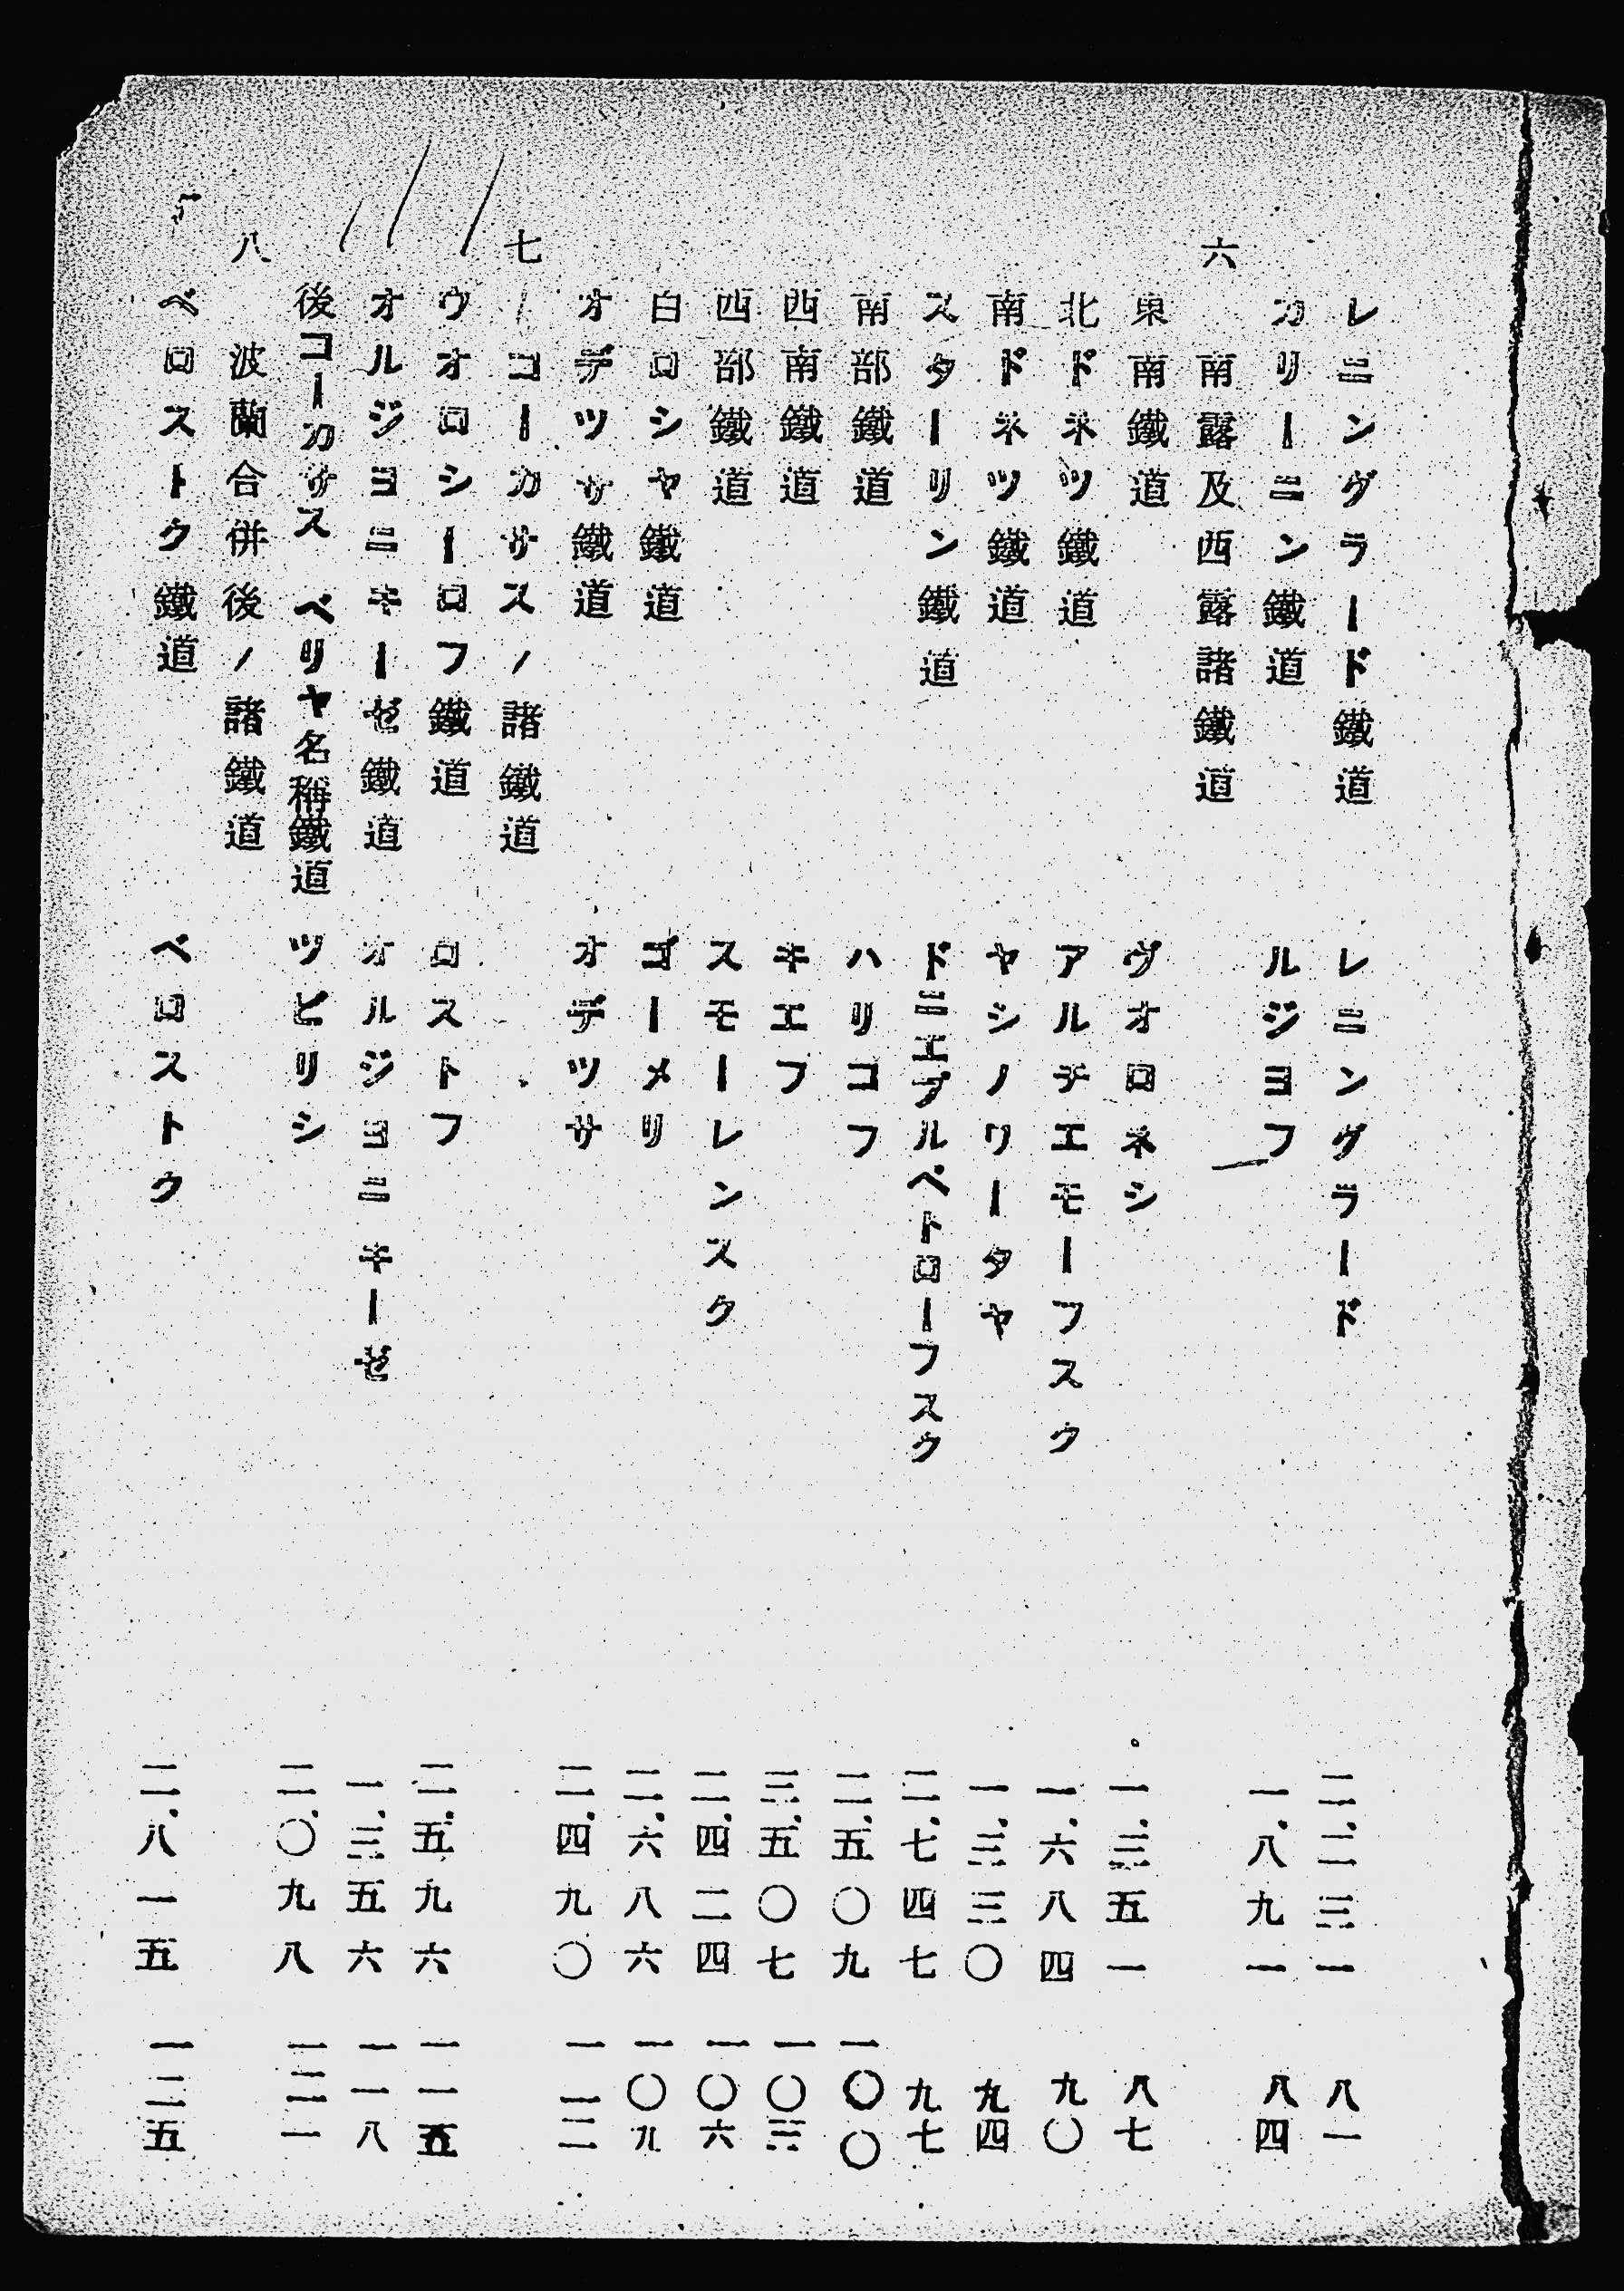 レニングラード鐵道 レニングラード 二.二三一 八一
カリーニン鐵道 ルジヨフ 一.八九一 八四
六 南露及西露諸鐵道
東南鐵道 ヴオロネシ 一.三五一 八七
北ドネツ鐵道 アルチエモーフスク 一.六八四 九〇
南ドネツ鐵道 ヤシノワータヤ 一.三三〇 九四
スターリン鐵道 ドニエプルペトローフスク 二.七四七 九七
南部鐵道 ハリコフ 二.五〇九 一〇〇
西南鐵道 キエフ 三.五〇七 一〇三
西部鐵道 スモーレンスク 二.四二四 一〇六
白ロシヤ鐵道 ゴーメリ 二.六八六 一〇九
オデツサ鐵道 オデツサ 二.四九〇 一一二
七 コーカサスノ諸鐵道
ウオロシーロフ鐵道 ロストフ 二.五九六 一一五
オルジヨニキーゼ鐵道 オルジヨニキーゼ 一.三五六 一一八
後コーカサスベリヤ名稱鐵道 ツビリシ 二.〇九八 一二一
八 波蘭合併後ノ諸鐵道
ベロストク鐵道 ベロストウ 二.八一五 一二五